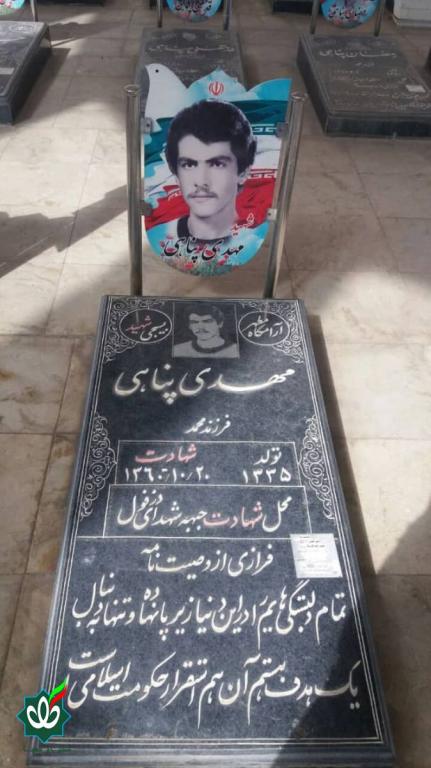 شهید
مهدی پناهی
آرامگاه مطهر
بسیجی شهید
مهدی پناهی
فرزند محمد
تولد
۱۳۳۵
شهادت
۱۳۶۰-۱۰/۲۰
محل شهادت جبهه شهدای دزفول
فرازی از وصیت نامه
تمام دلبستگی هایم را در این دنیا زیر پا نهاده و تنها به دنبال
یک هدف هستم آن هم استقرار حکومت اسلامی است